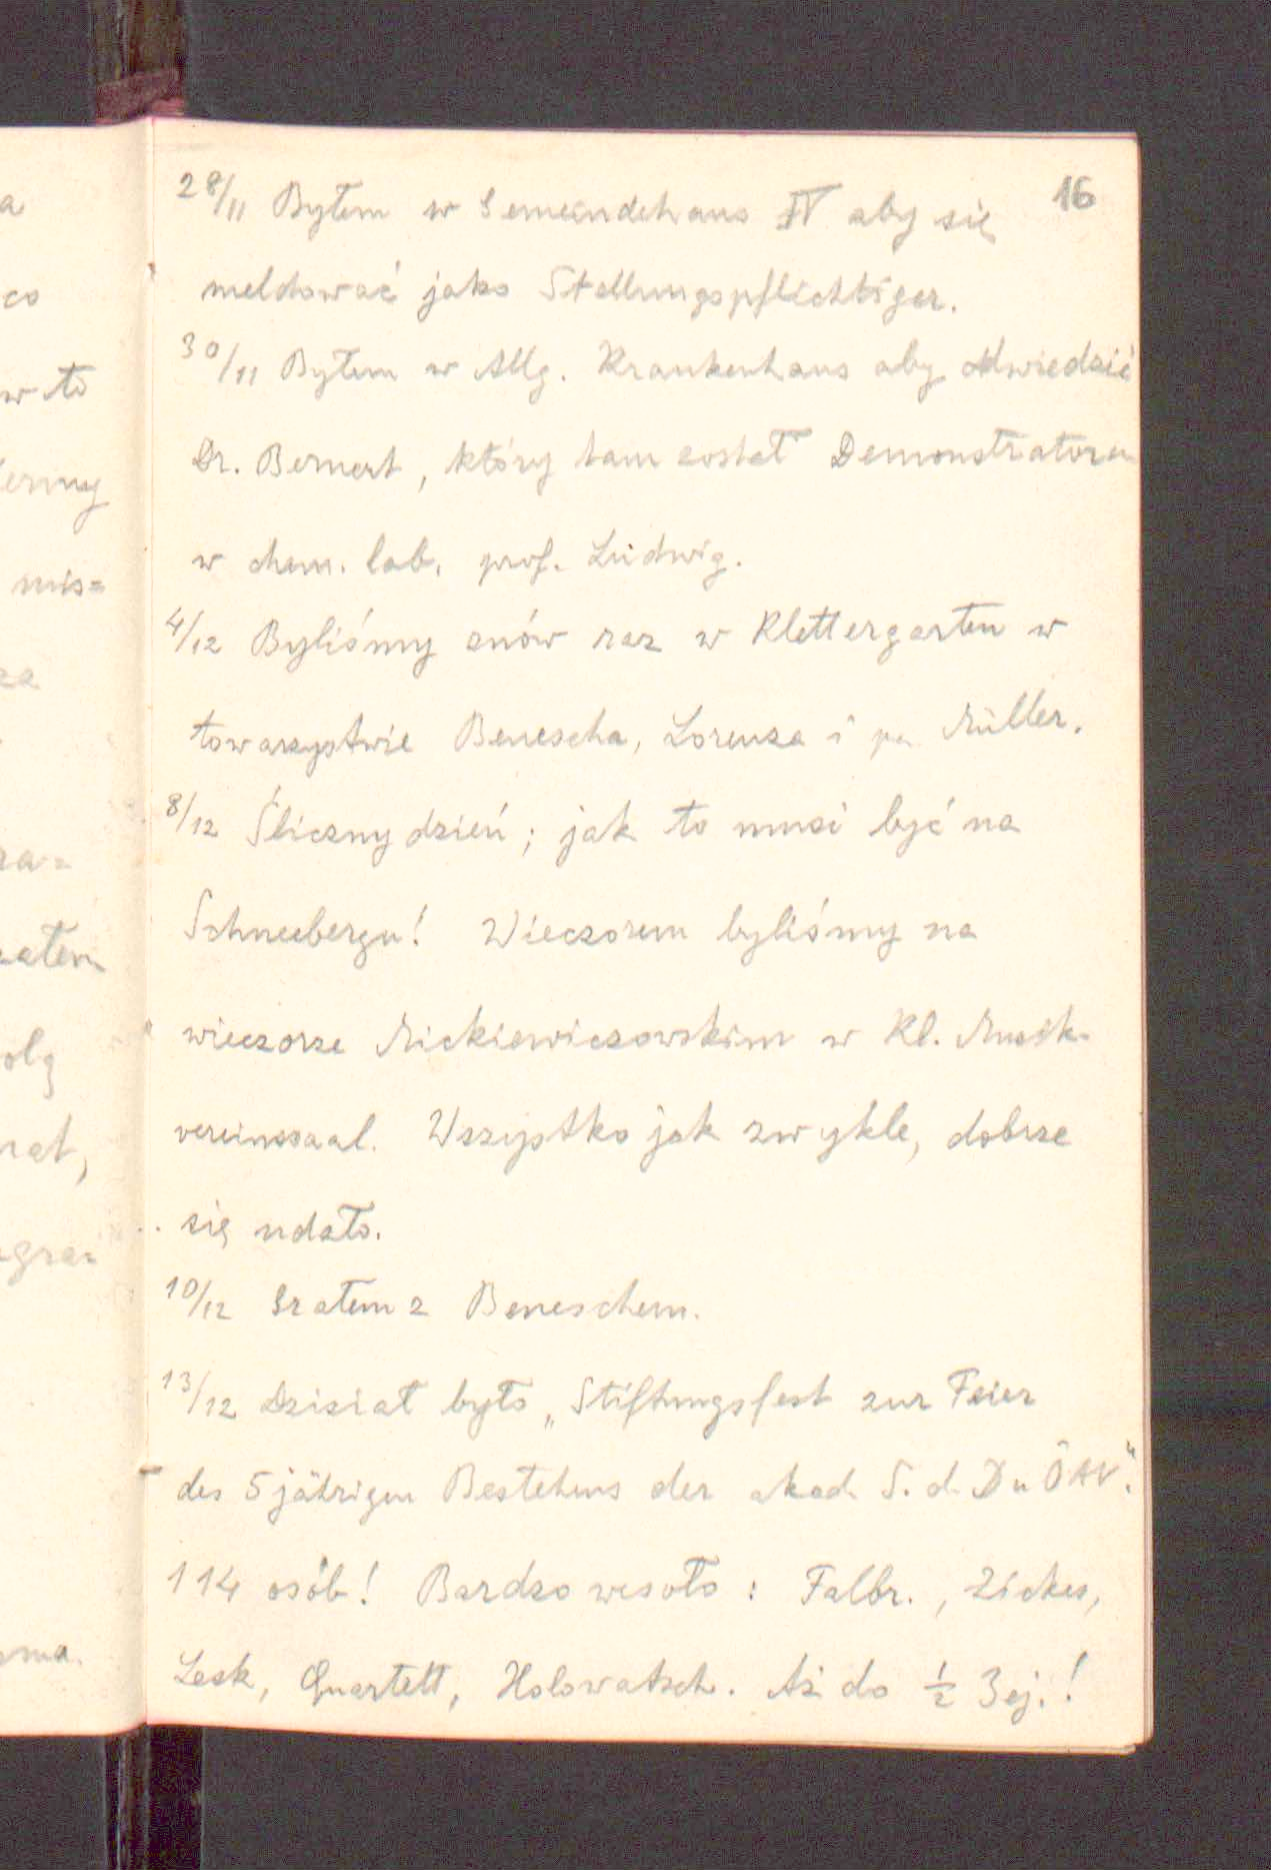 16
28/11 Byłem w Gemeindehaus IV aby się
meldować jako Stellungspflichtiger.
30/11 Byłem w Allg. Krankenhaus aby odwiedzić
Dr. Bernert, który tam został Demonstratorem
w chem. lab. prof. Ludwig.
4/12 Byliśmy znów raz w Klettergarten w
towarzystwie Benescha, Lorenza i pa Müller.
8/12 Śliczny dzień; jak to musi być na
Schneebergu! Wieczorem byliśmy na
wieczorze Mickiewiczowskim w Kl. Musik-
vereinssaal. Wszystko jak zwykle, dobrze
się udało.
10/12 Grałem z Beneschem.
13/12 Dzisiał było „Stiftungsfest zur Feier
des 5 jährigen Bestehens der akad. S. d. D u ÖAV“.
114 osób! Bardzo wesoło: Falbr., Zickes,
Lesk, Quartett, Holowatsch. Aż do ½ 3ej.!
a
co
w to
ermy
mis=
za
za=
załem
olę
rat,
gra=
sma.